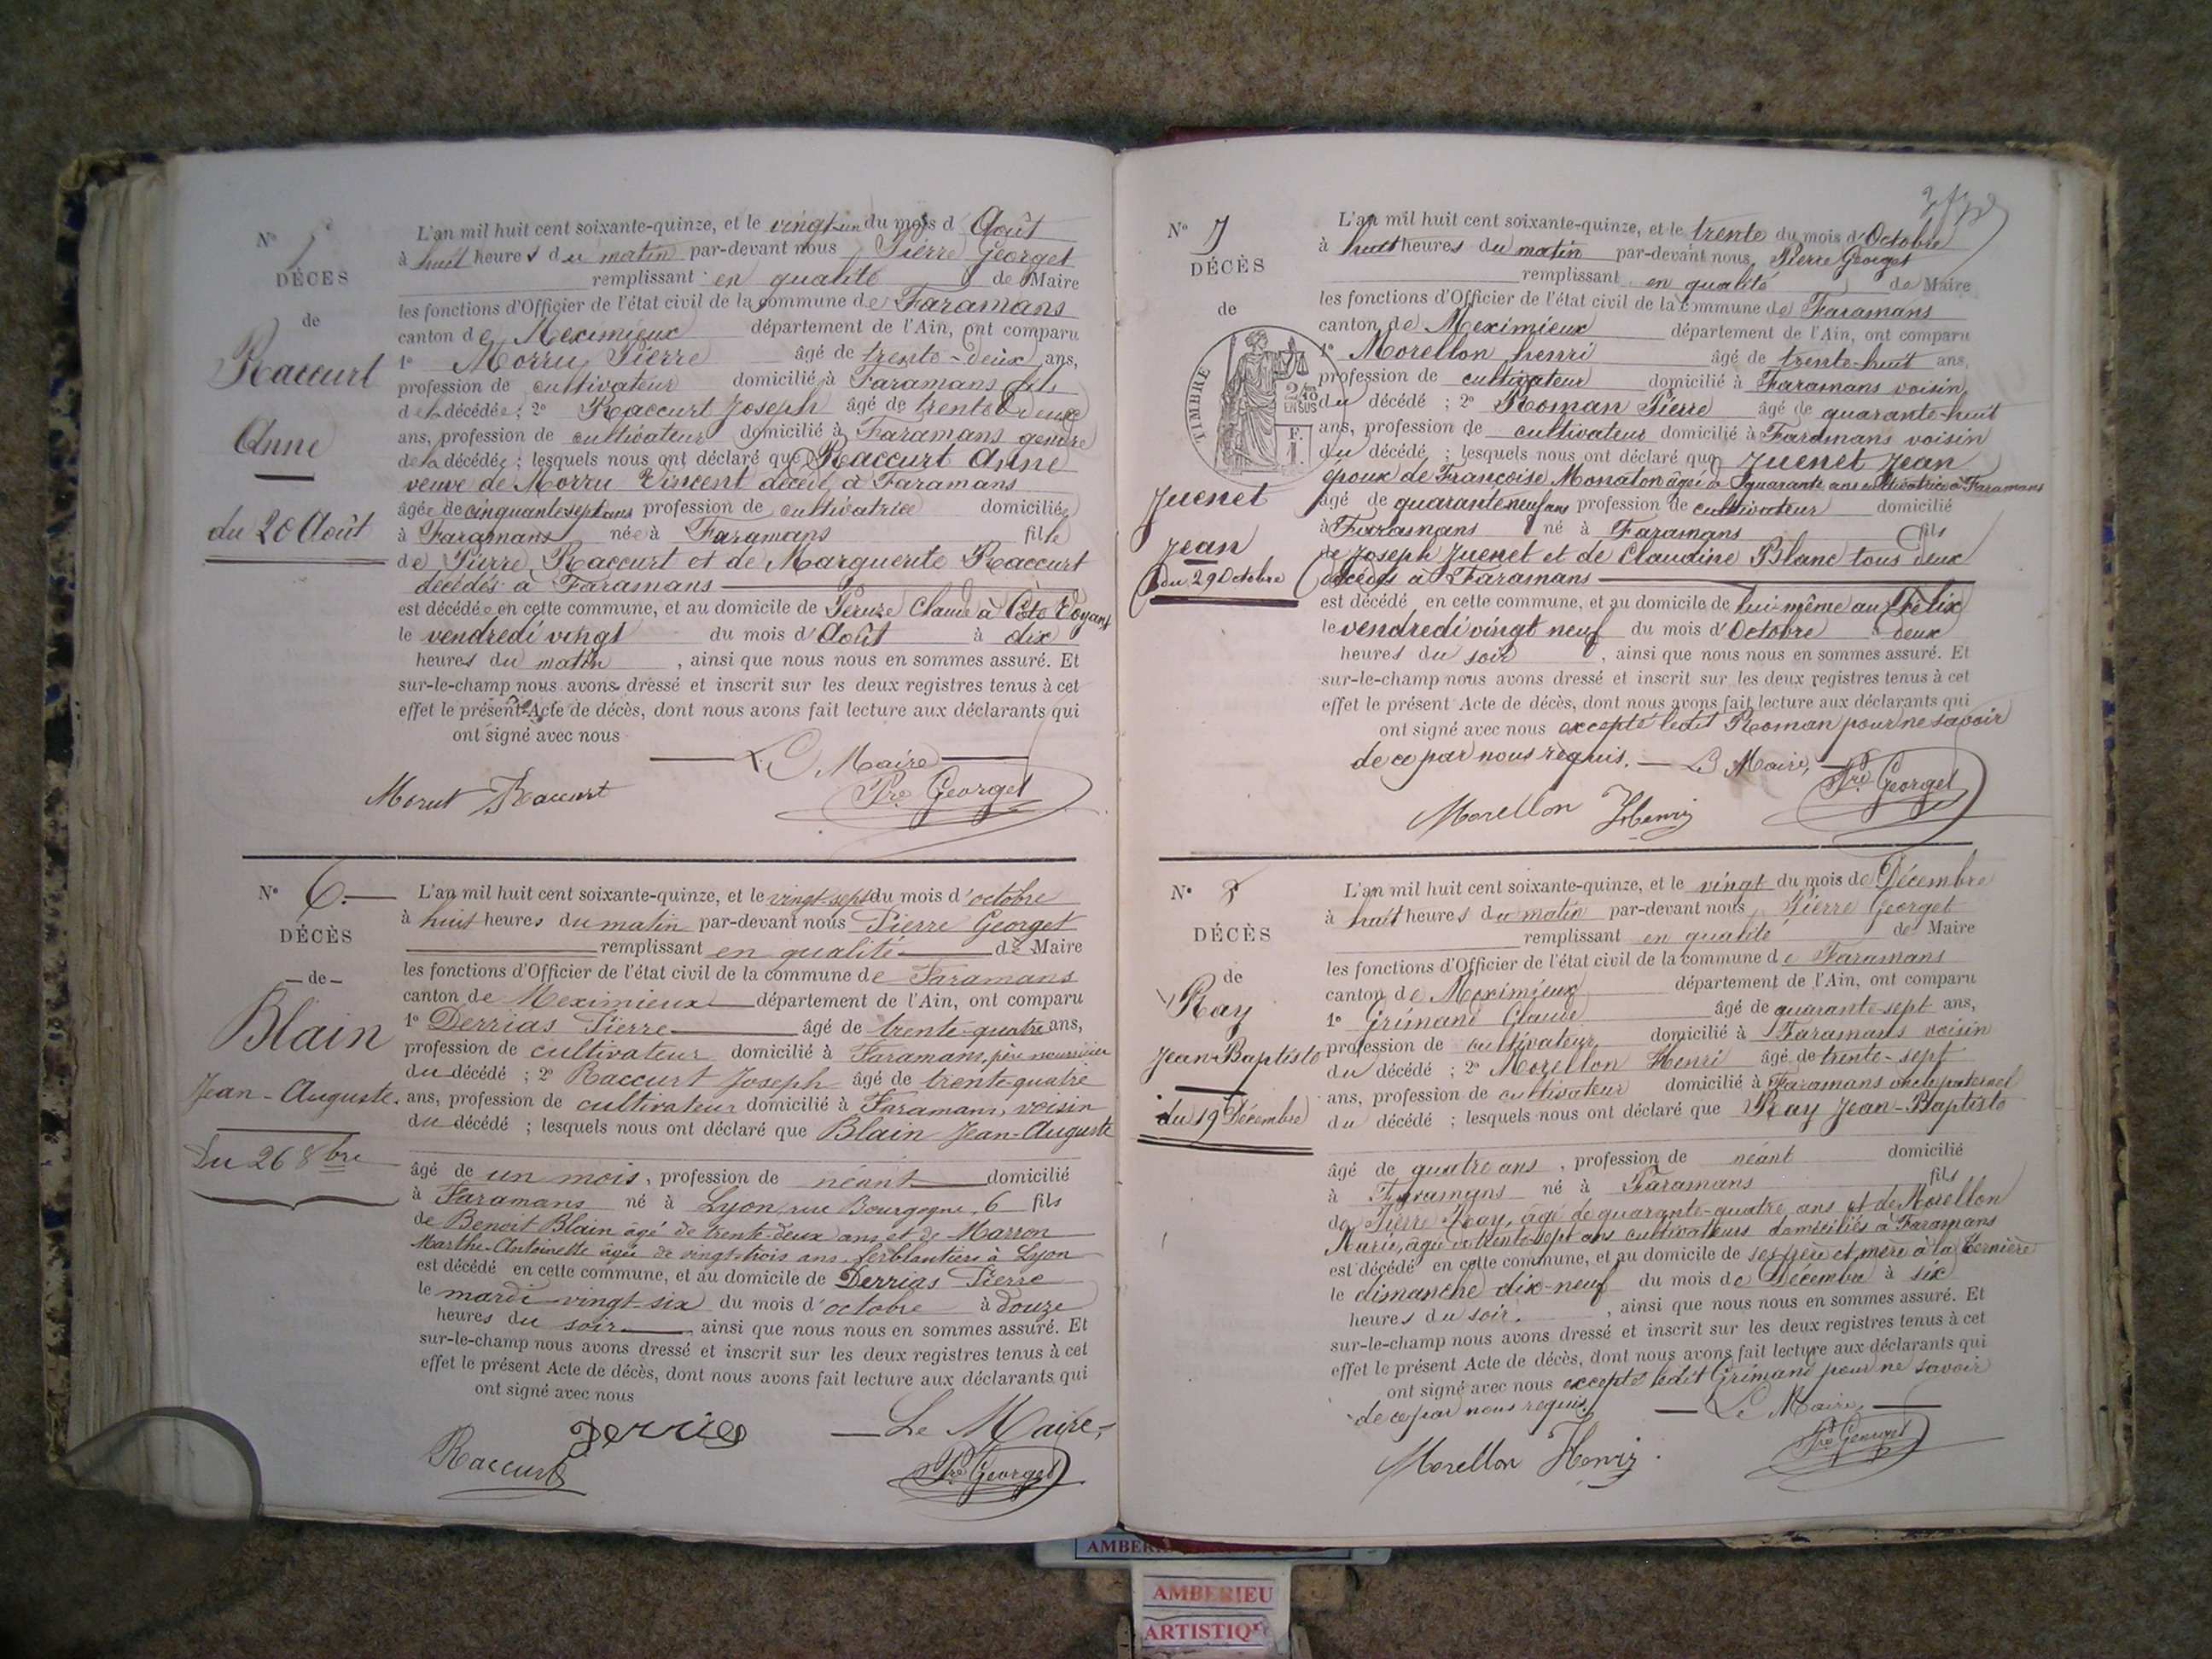 N° 5
DÉCÈS
de
Raccurt
Anne
du 20 Août
L'an mil huit cent soixante-quinze, et le vingt-un du mois d'Août
à huit heures du matin par-devant nous Pierre Georget
remplissant en qualité de Maire
les fonctions d'Officier de l'état civil de la commune de Faramans
canton de Meximieux département de l'Ain, ont comparu
1° Morru Pierre âgé de trente-deux ans,
profession de cultivateur domicilié à Faramans fils
de la décédée ; 2° Raccurt Joseph âgé de trente deux
ans, profession de cultivateur domicilié à Faramans gendre
de la décédée ; lesquels nous ont déclaré que Raccurt Anne
veuve de Morru Vincent décédé à Faramans
âgée de cinquante sept ans profession de cultivatrice domiciliée
à Faramans née à Faramans fille
de Pierre Raccurt et de Marguerite Raccurt
décédés à Faramans
est décédée en cette commune, et au domicile de Claude à Côte
le vendredi vingt du mois d'Août à dix
heures du matin , ainsi que nous nous en sommes assuré. Et
sur-le-champ nous avons dressé et inscrit sur les deux registres tenus à cet
effet le présent Acte de décès, dont nous avons fait lecture aux déclarants qui
ont signé avec nous
Le Maire
Morut Raccurt Pre Georget
N° 6
DÉCÈS
de
Blain
Jean-Auguste.
Du 26 8bre
L'an mil huit cent soixante-quinze, et le vingt-sept du mois d'octobre
à huit heures du matin par-devant nous Pierre Georget
remplissant en qualité de Maire
les fonctions d'Officier de l'état civil de la commune de Faramans
canton de Meximieux département de l'Ain, ont comparu
1° Derrias Pierre âgé de trente-quatre ans,
profession de cultivateur domicilié à Faramans, père nourricier
du décédé ; 2° Raccurt Joseph âgé de trente quatre
ans, profession de cultivateur domicilié à Faramans, voisin
du décédé ; lesquels nous ont déclaré que Blain Jean-Auguste
âgé de un mois, profession de néant domicilié
à Faramans né à Lyon, rue Bourgogne, 6 fils
de Benoit Blain âgé de trente-deux ans et de Marron
Marthe-Antoinette âgée de vingt-trois ans, ferblantiers à Lyon
est décédé en cette commune, et au domicile de Derrias Pierre
le mardi vingt-six du mois d'octobre à douze
heures du soir , ainsi que nous nous en sommes assuré. Et
sur-le-champ nous avons dressé et inscrit sur les deux registres tenus à cet
effet le présent Acte de décès, dont nous avons fait lecture aux déclarants qui
ont signé avec nous
Derrias Le Maire,
Raccurt Pre Georget
N° 7
DÉCÈS
de
TIMBRE
EN SUS
F.
1.
Juenet
Jean
du 29 Octobre
L'an mil huit cent soixante-quinze, et le trente du mois d'Octobre
à huit heures du matin par-devant nous Pierre Georget
remplissant en qualité de Maire
les fonctions d'Officier de l'état civil de la commune de Faramans
canton de Meximieux département de l'Ain, ont comparu
1° Morellon henri âgé de trente-huit ans,
profession de cultivateur domicilié à Faramans voisin
du décédé ; 2° Roman Pierre âgé de quarante-huit
ans, profession de cultivateur domicilié à Faramans voisin
du décédé ; lesquels nous ont déclaré que Juenet Jean
époux de Françoise Monaton âgée de quarante ans cultivatrice à Faramans
âgé de quarante neuf ans profession de cultivateur domicilié
à Faramans né à Faramans fils
de Joseph Juenet et de Claudine Blanc tous deux
décédés à Faramans
est décédé en cette commune, et au domicile de lui-même au Félix
le vendredi vingt neuf du mois d'Octobre à deux
heures du soir , ainsi que nous nous en sommes assuré. Et
sur-le-champ nous avons dressé et inscrit sur les deux registres tenus à cet
effet le présent Acte de décès, dont nous avons fait lecture aux déclarants qui
ont signé avec nous excepté ledit Roman pour ne savoir
de ce par nous requis. Le Maire,
Morellon Henri Pre Georget
N° 8
DÉCÈS
de
Ray
Jean-Baptiste
du 19 Décembre
L'an mil huit cent soixante-quinze, et le vingt du mois de Décembre
à huit heures du matin par-devant nous Pierre Georget
remplissant en qualité de Maire
les fonctions d'Officier de l'état civil de la commune de Faramans
canton de Meximieux département de l'Ain, ont comparu
1° Grimand Claude âgé de quarante-sept ans,
profession de cultivateur domicilié à Faramans voisin
du décédé ; 2° Morellon Henri âgé de trente-sept
ans, profession de cultivateur domicilié à Faramans oncle paternel
du décédé ; lesquels nous ont déclaré que Ray Jean-Baptiste
âgé de quatre ans , profession de néant domicilié
à Faramans né à Faramans fils
de Pierre Ray, âgé de quarante-quatre ans et de Morellon
Marie, âgée de trente-sept ans cultivateurs domiciliés à Faramans
est décédé en cette commune, et au domicile de ses père et mère à la
le dimanche dix-neuf du mois de Décembre à six
heures du soir. , ainsi que nous nous en sommes assuré. Et
sur-le-champ nous avons dressé et inscrit sur les deux registres tenus à cet
effet le présent Acte de décès, dont nous avons fait lecture aux déclarants qui
ont signé avec nous excepté ledit Grimand pour ne savoir
de ce par nous requis. Le Maire,
Morellon Henri Pre Georget
AMBERIEU
ARTISTIQUE